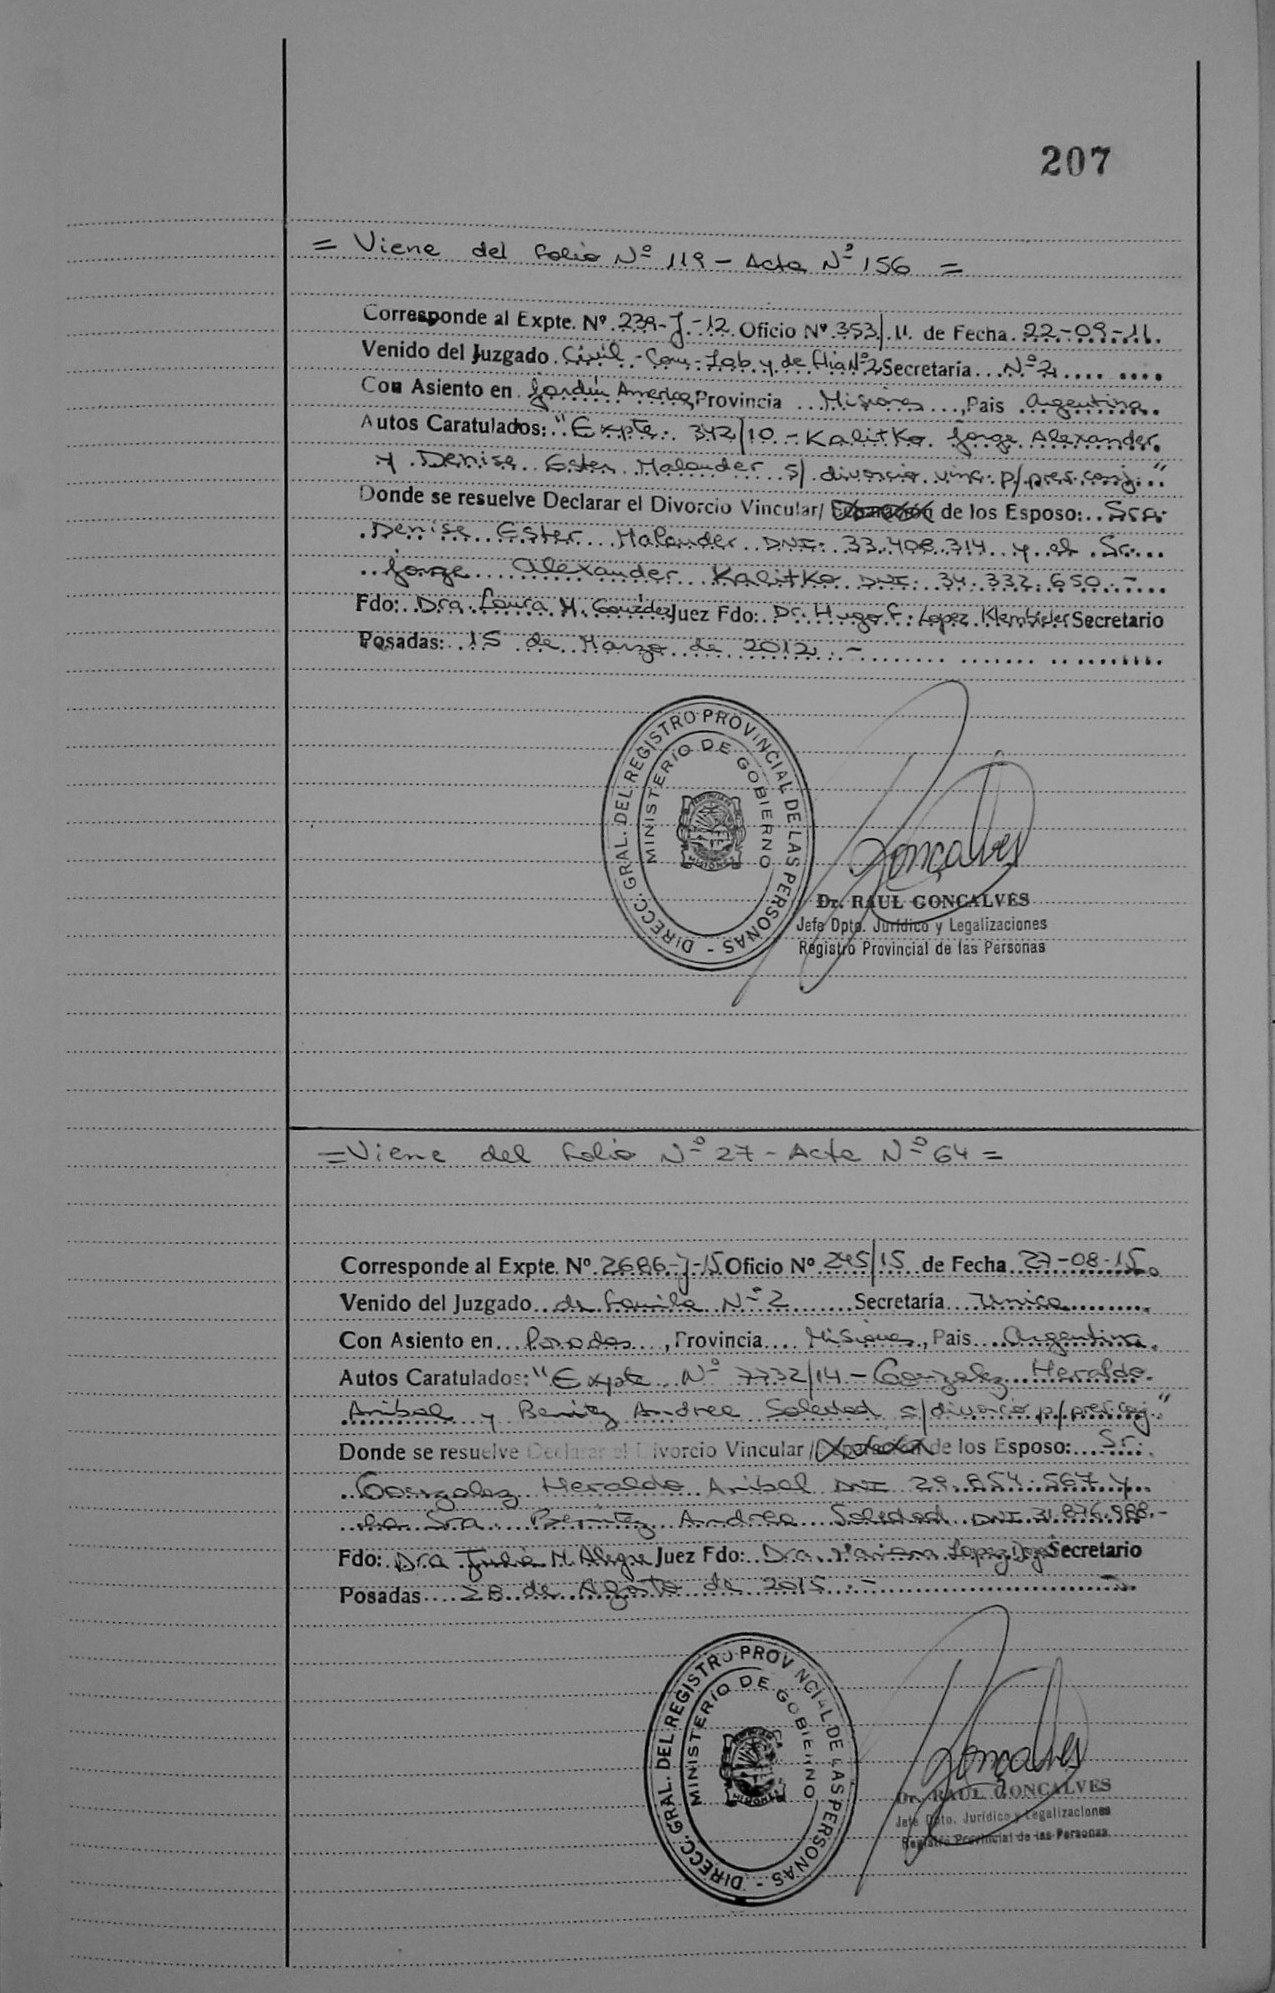 207
= Viene del folio Nº 119 - Acta Nº 156 =
Corresponde al Expte. Nº 239-J-12 Oficio Nº 353/11 de Fecha 22-09-11.
Venido del Juzgado Civil - Com - Lab y de flia Nº 2 Secretaria Nº 2
Con Asiento en Jardín America, Provincia Misiones, Pais Argentina.
Autos Caratulados: "Expte. 342/10 - Kalitko Jorge Alexander
y Denise Ester Malander s/ divorcio vinc. p/pres. conj."
Donde se resuelve Declarar el Divorcio Vincular/ de los Esposo: Sra.
Denise Ester Malander DNI: 33.408.314 y el Sr.
Jorge Alexander Kalitko DNI: 34.332.650.-
Fdo: Dra. Laura M. González Juez Fdo: Dr. Hugo F. Lopez Secretario
Posadas: 15 de Marzo de 2012.-
DIRECC. GRAL. DEL REGISTRO PROVINCIAL DE LAS PERSONAS -
MINISTERIO DE GOBIERNO
MISIONES
Gonçalves
Dr. RAUL GONCALVES
Jefe Dpto. Jurídico y Legalizaciones
Registro Provincial de las Personas
= Viene del folio Nº 27 - Acta Nº 64 =
Corresponde al Expte. Nº 2686-J-15 Oficio Nº 245/15 de Fecha 27-08-15.
Venido del Juzgado de Familia Nº 2 Secretaría Unica
Con Asiento en Posadas, Provincia Misiones, Pais Argentina.
Autos Caratulados: "Expte Nº 7732/14 - Gonzalez Heraldo
Anibal y Benitez Andrea Soledad s/divorcio p/pres. conj."
Donde se resuelve Declarar el Divorcio Vincular / de los Esposo: Sr.
Gonzalez Heraldo Anibal DNI 29.854.567 y
la Sra. Benitez Andrea Soledad DNI 31.876.988.-
Fdo: Dra Julia M. Alegre Juez Fdo: Dra. Mariana Lopez Secretario
Posadas 28 de Agosto de 2015.-
DIRECC. GRAL. DEL REGISTRO PROVINCIAL DE LAS PERSONAS -
MINISTERIO DE GOBIERNO
MISIONES
Gonçalves
Dr. RAUL GONCALVES
Jefe Dpto. Jurídico y Legalizaciones
Registro Provincial de las Personas